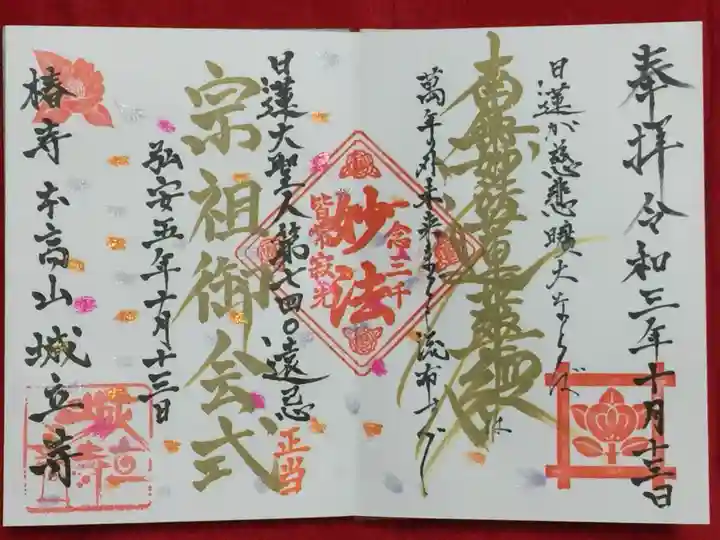 奉拝 令和三年十月十三日
日蓮が慈悲曠大ならば
南無妙法蓮華経は
萬年の外未来まても流布すべし
一念三千
妙法
皆常寂光
日蓮大聖人第七四〇遠忌
正当
宗祖御会式
弘安五年十月十三日
椿寺 本高山城立寺
城立寺